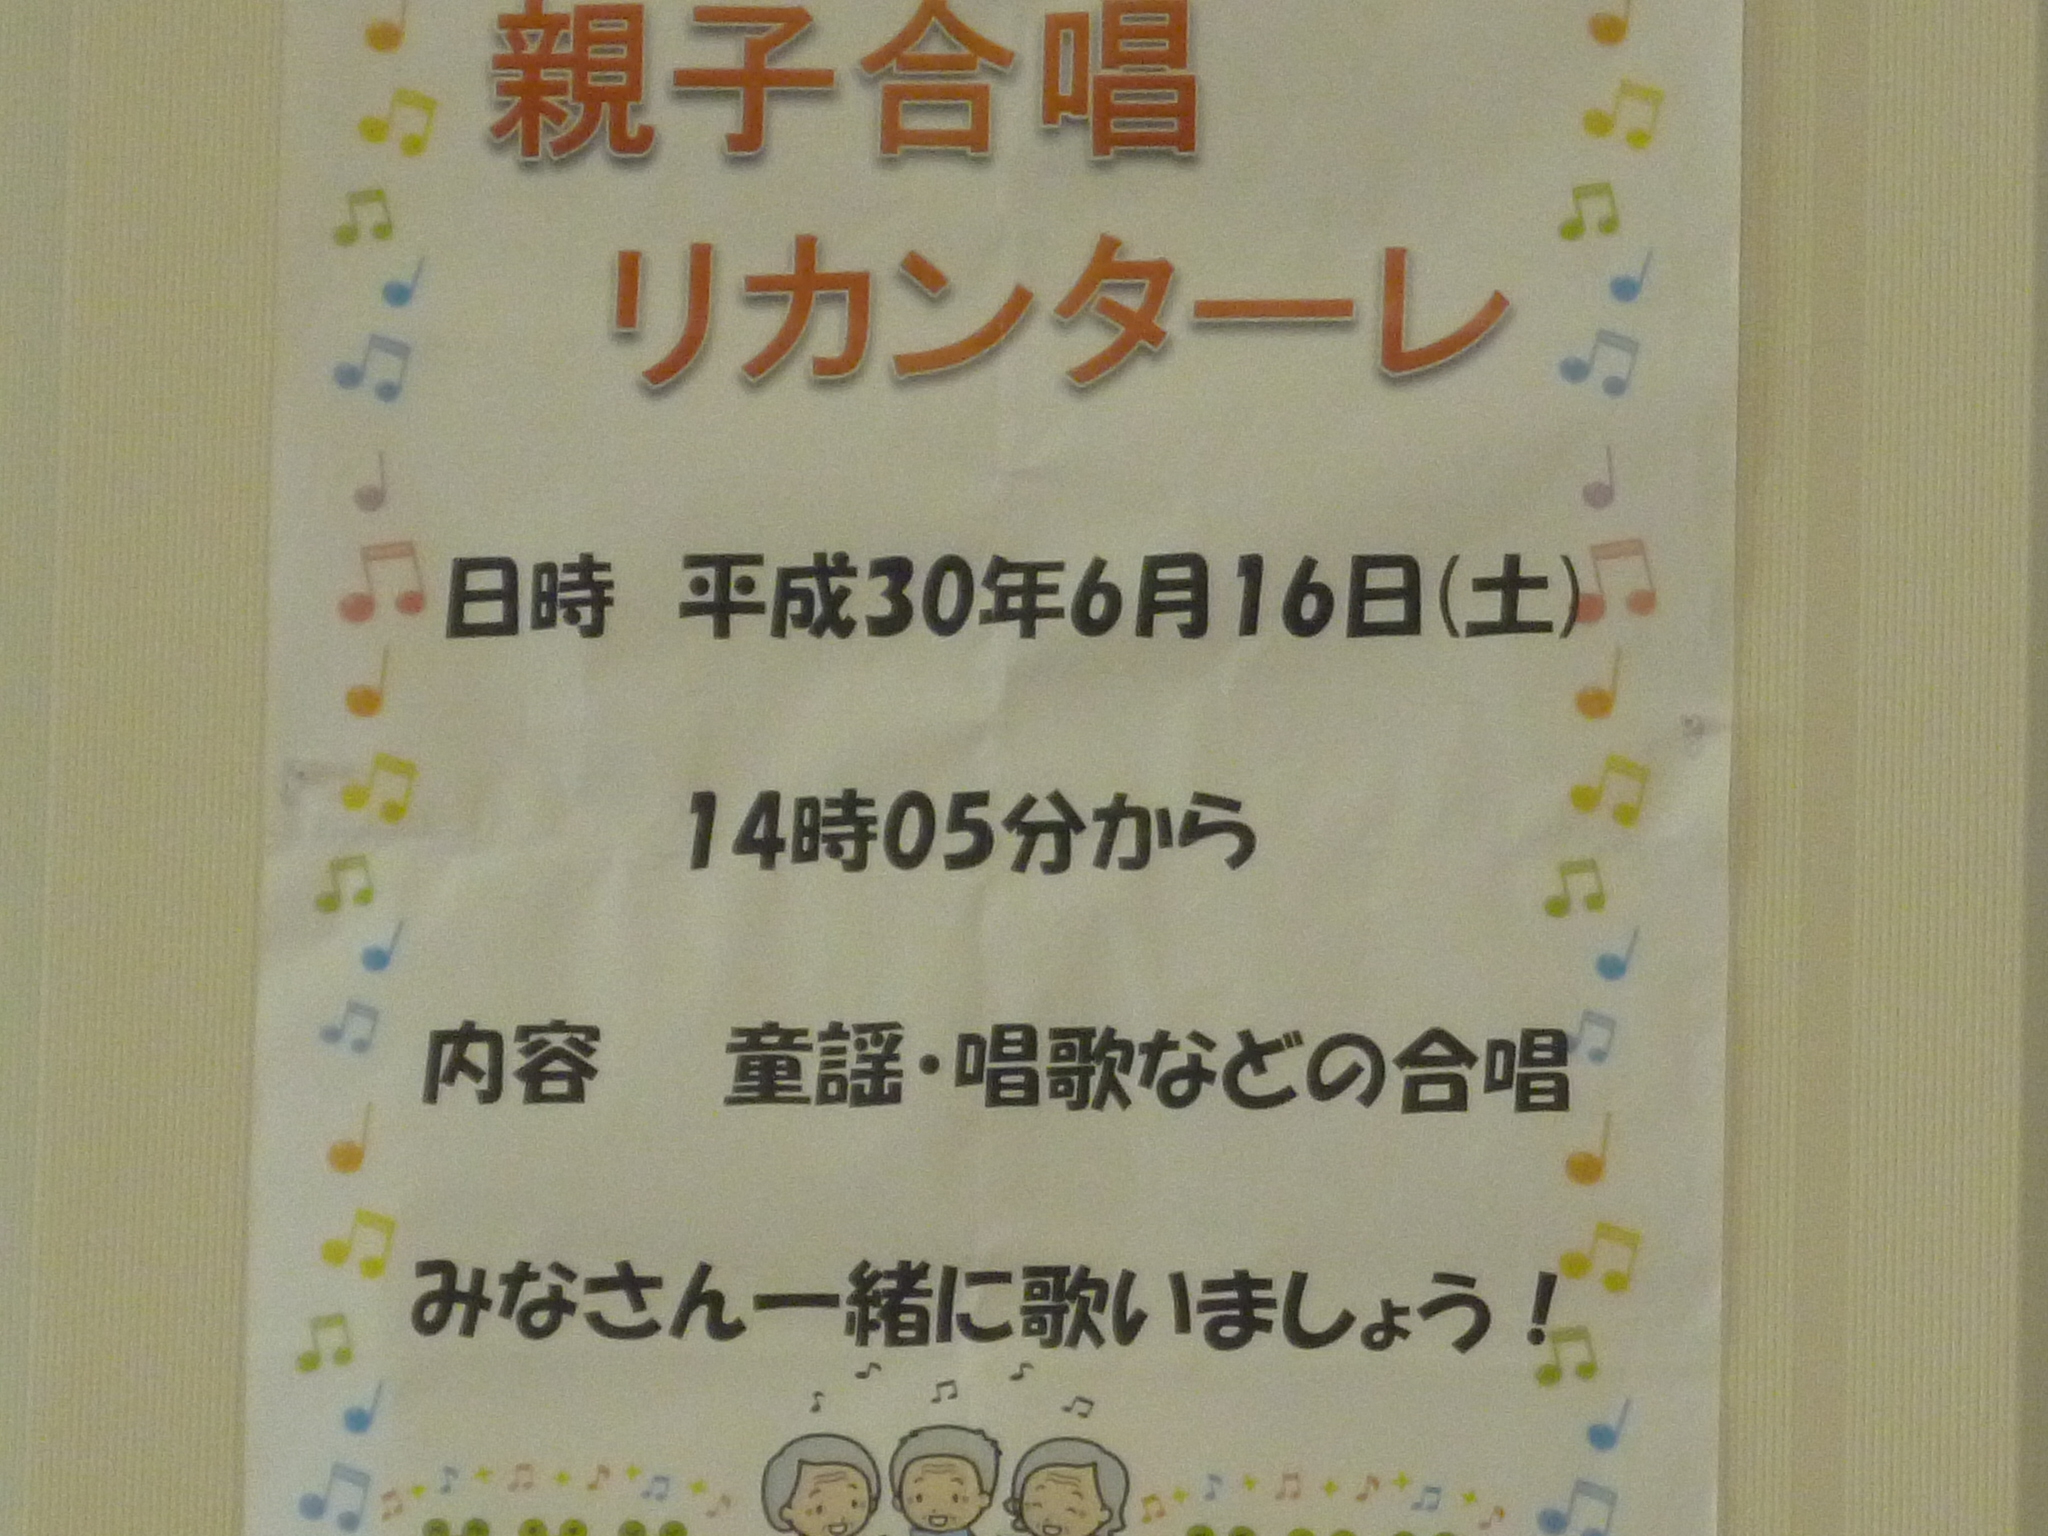 親子合唱
リカンターレ
日時 平成30年6月16日(土)
14時05分から
内容 童謡・唱歌などの合唱
みなさん一緒に歌いましょう!